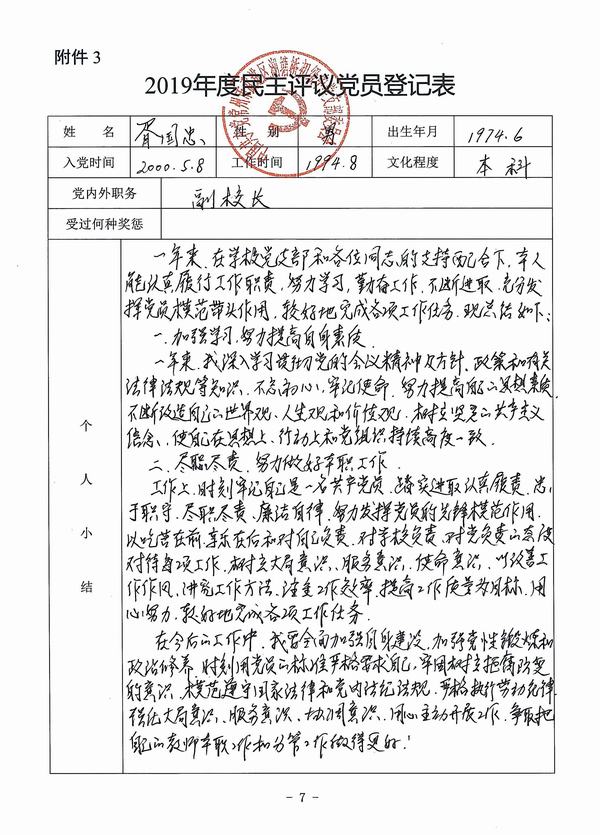 附件 3
2019年度民主评议党员登记表
姓 名 胥国忠 性 别 男 出生年月 1974.6
入党时间 2000.5.8 工作时间 1994.8 文化程度 本科
党内外职务 副校长
受过何种奖惩
个人小结
一年来,在学校党支部和各位同志的支持配合下,本人
能认真履行工作职责,努力学习,勤奋工作,不断进取,充分发
挥党员模范带头作用,较好地完成各项工作任务,现总结如下:
一、加强学习,努力提高自身素质
一年来,我深入学习贯彻党的会议精神及方针、政策和有关
法律法规等知识,不忘初心,牢记使命,努力提高自己的思想素质,
不断改造自己的世界观、人生观和价值观,树立坚定的共产主义
信念,使自己在思想上、行动上和党组织持续高度一致。
二、尽职尽责,努力做好本职工作.
工作上,时刻牢记自己是一名共产党员,踏实进取认真履责,忠
于职守,尽职尽责,廉洁自律,努力发挥党员的先锋模范作用.
以吃苦在前,享乐在后和对自己负责、对学校负责、对党负责的态度
对待每项工作,树立大局意识、服务意识、使命意识,以改善工
作作风、讲究工作方法、注重工作效率、提高工作质量为目标,用
心努力,较好地完成各项工作任务.
在今后的工作中,我要全面加强自身建设,加强党性锻炼和
政治修养,时刻用党员的标准严格要求自己,牢固树立拒腐防变
的意识,模范遵守国家法律和党内法纪法规,严格执行劳动纪律,
强化大局意识、服务意识、协同意识,用心主动开展工作,争取把
自己的教师本职工作和分管工作做得更好!
- 7 -